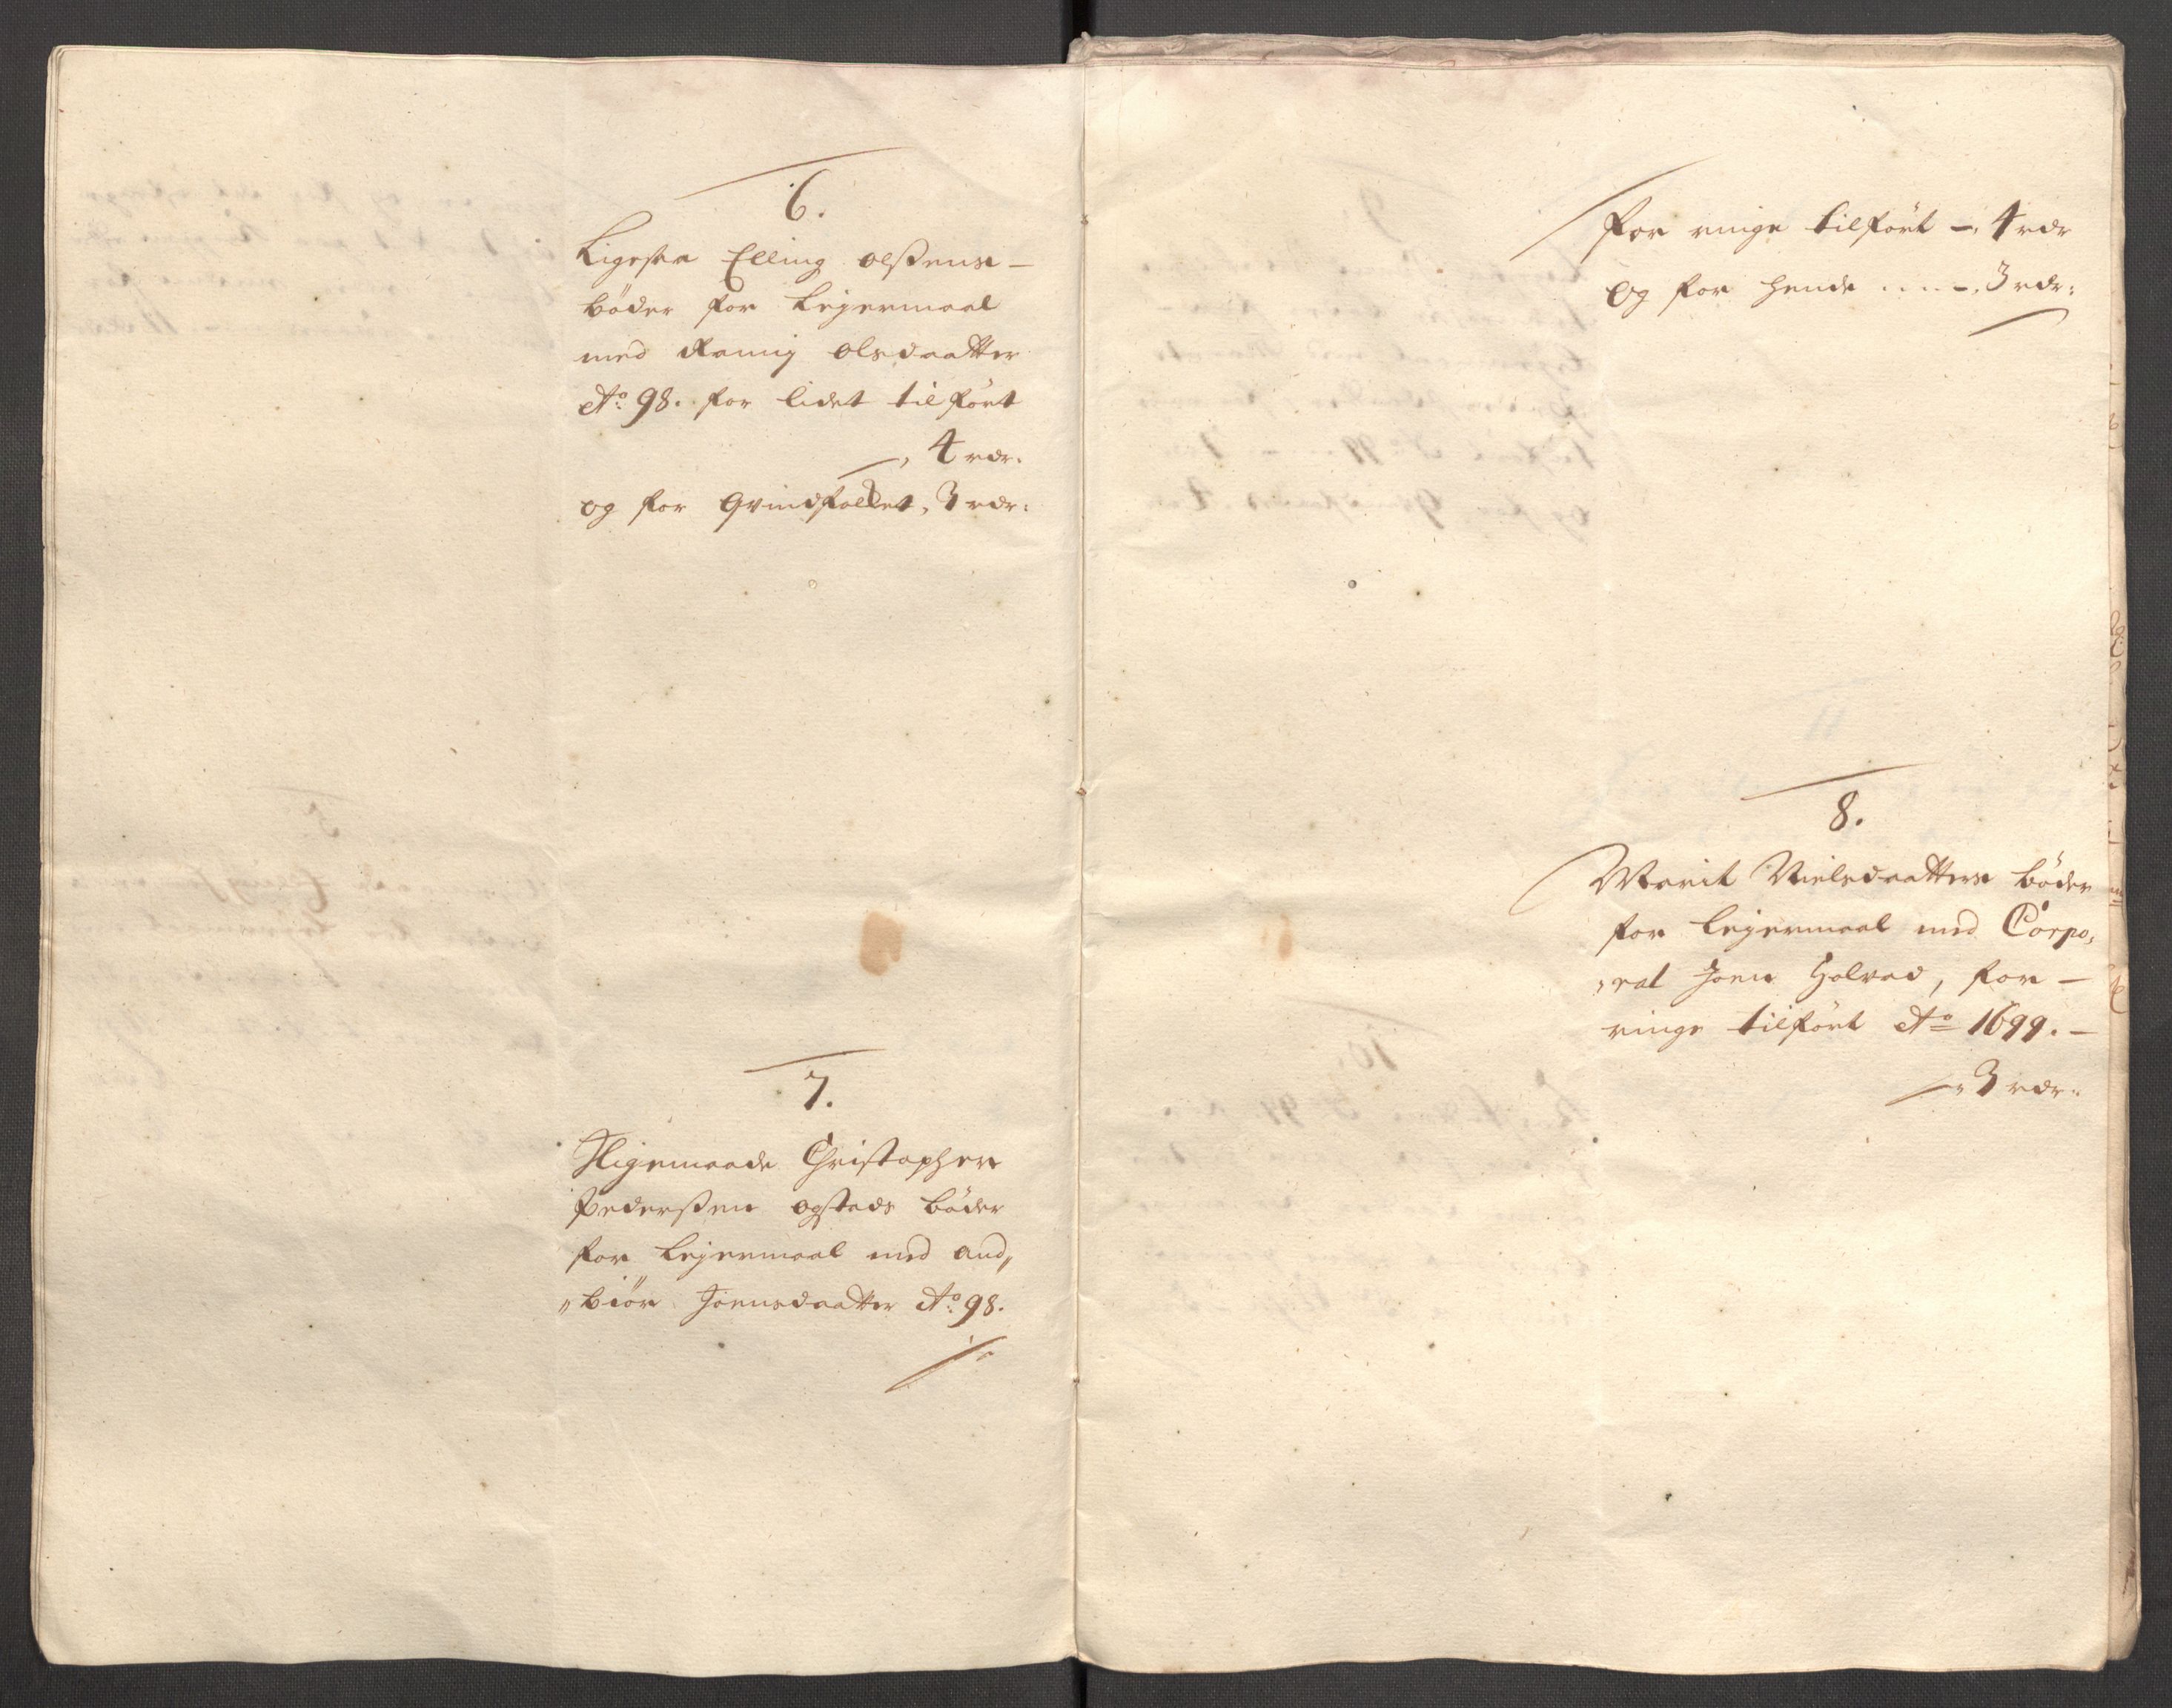 6.
Ligesaa Elling olßens –
bøder for Lejermaal
med Ramig olsdaatter
Ao: 98. for lidet tilført
–, 4 rdr.
og for qvindfolket, 3 rdr:
7.
Jligemaade Christopher
Pederßen ogstads bøder
for Lejermaal med and„
„biør Joensdaatter Ao: 98.
for ringe tilført –, 4 rdr
og for hende .... –, 3 rdr:
8.
Marit Nielsdaatters bøder
for lejermaal med Corpo,
,ral Joen Holvad, for –
ringe tilført Ao 1699. –
–„ 3 rdr: